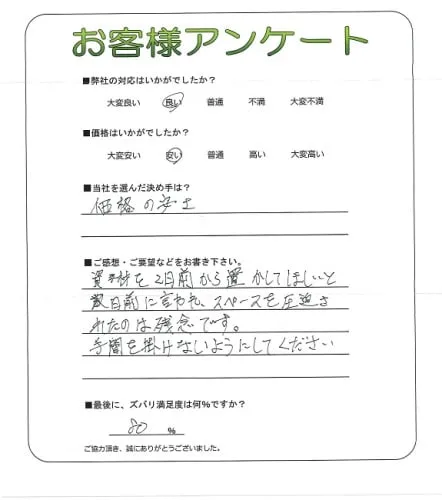 お客様アンケート
■弊社の対応はいかがでしたか？
大変良い 良い 普通 不満 大変不満
■価格はいかがでしたか？
大変安い 安い 普通 高い 大変高い
■当社を選んだ決め手は？
価格の安さ
■ご感想・ご要望などをお書き下さい。
資材を2日前から置かしてほしいと
数日前に言われ、スペースを圧迫さ
れたのは残念です。
手間を掛けないようにしてください
■最後に、ズバリ満足度は何%ですか？
80 %
ご協力頂き、誠にありがとうございました。